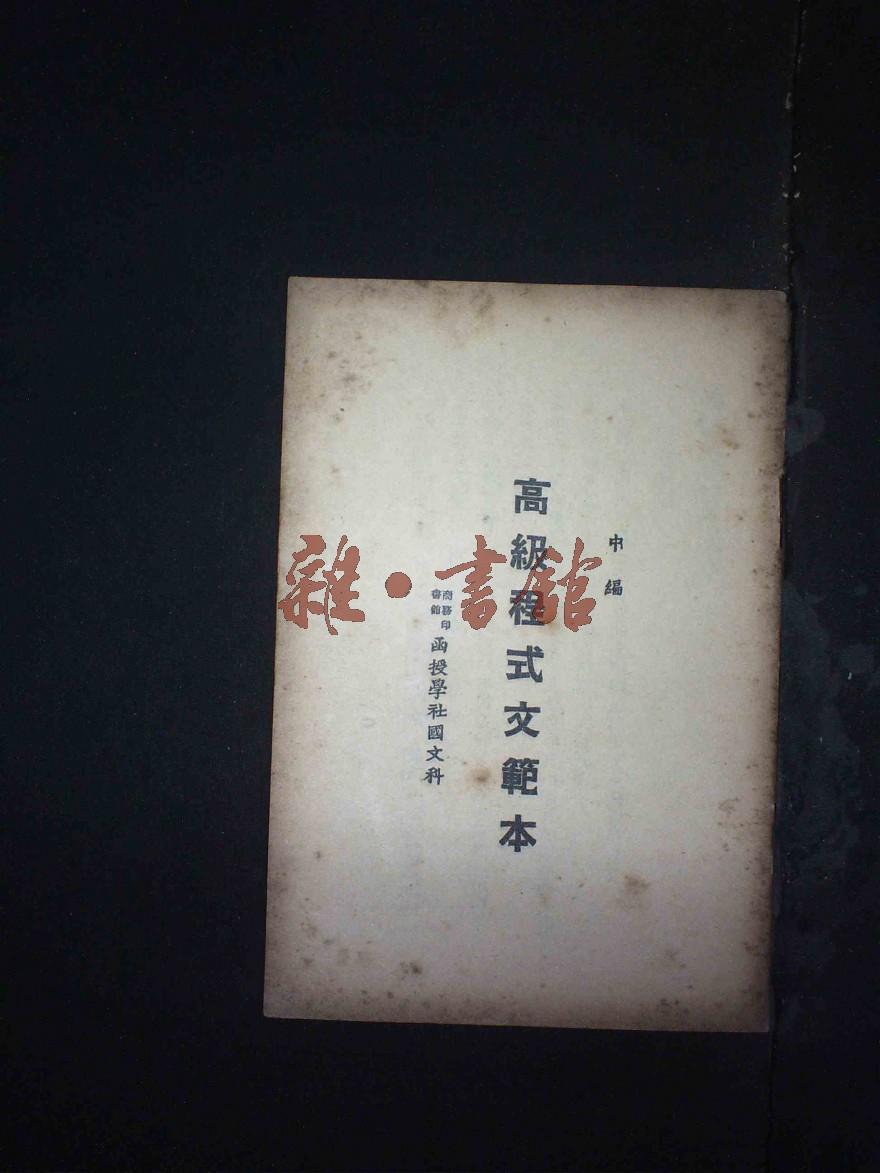 中編
高級程式文範本
商務印書館函授學社國文科
雜·書館